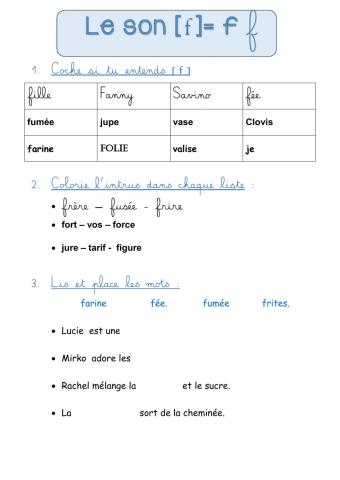 Le son [f]= f f
1. Coche si tu entends [ f ]
fille Fanny Savino fée
fumée jupe vase Clovis
farine FOLIE valise je
2. Colorie l'intrus dans chaque liste :
• frère – fusée - frire
• fort – vos – force
• jure – tarif - figure
3. Lis et place les mots :
farine fée. fumée frites.
• Lucie est une
• Mirko adore les
• Rachel mélange la et le sucre.
• La sort de la cheminée.